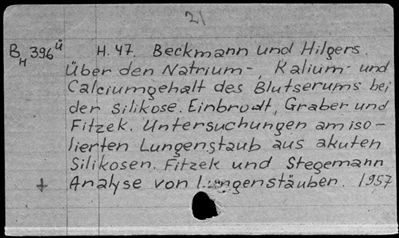 21
B_H 396ü H. 47. Beckmann und Hilgers.
Über den Natrium-, Kalium- und
Calciumgehalt des Blutserums bei
der Silikose. Einbrodt, Graber und
Fitzek. Untersuchungen am iso-
lierten Lungenstaub aus akuten
Silikosen. Fitzek und Stegemann
+ Analyse von Lungenstäuben. 1957